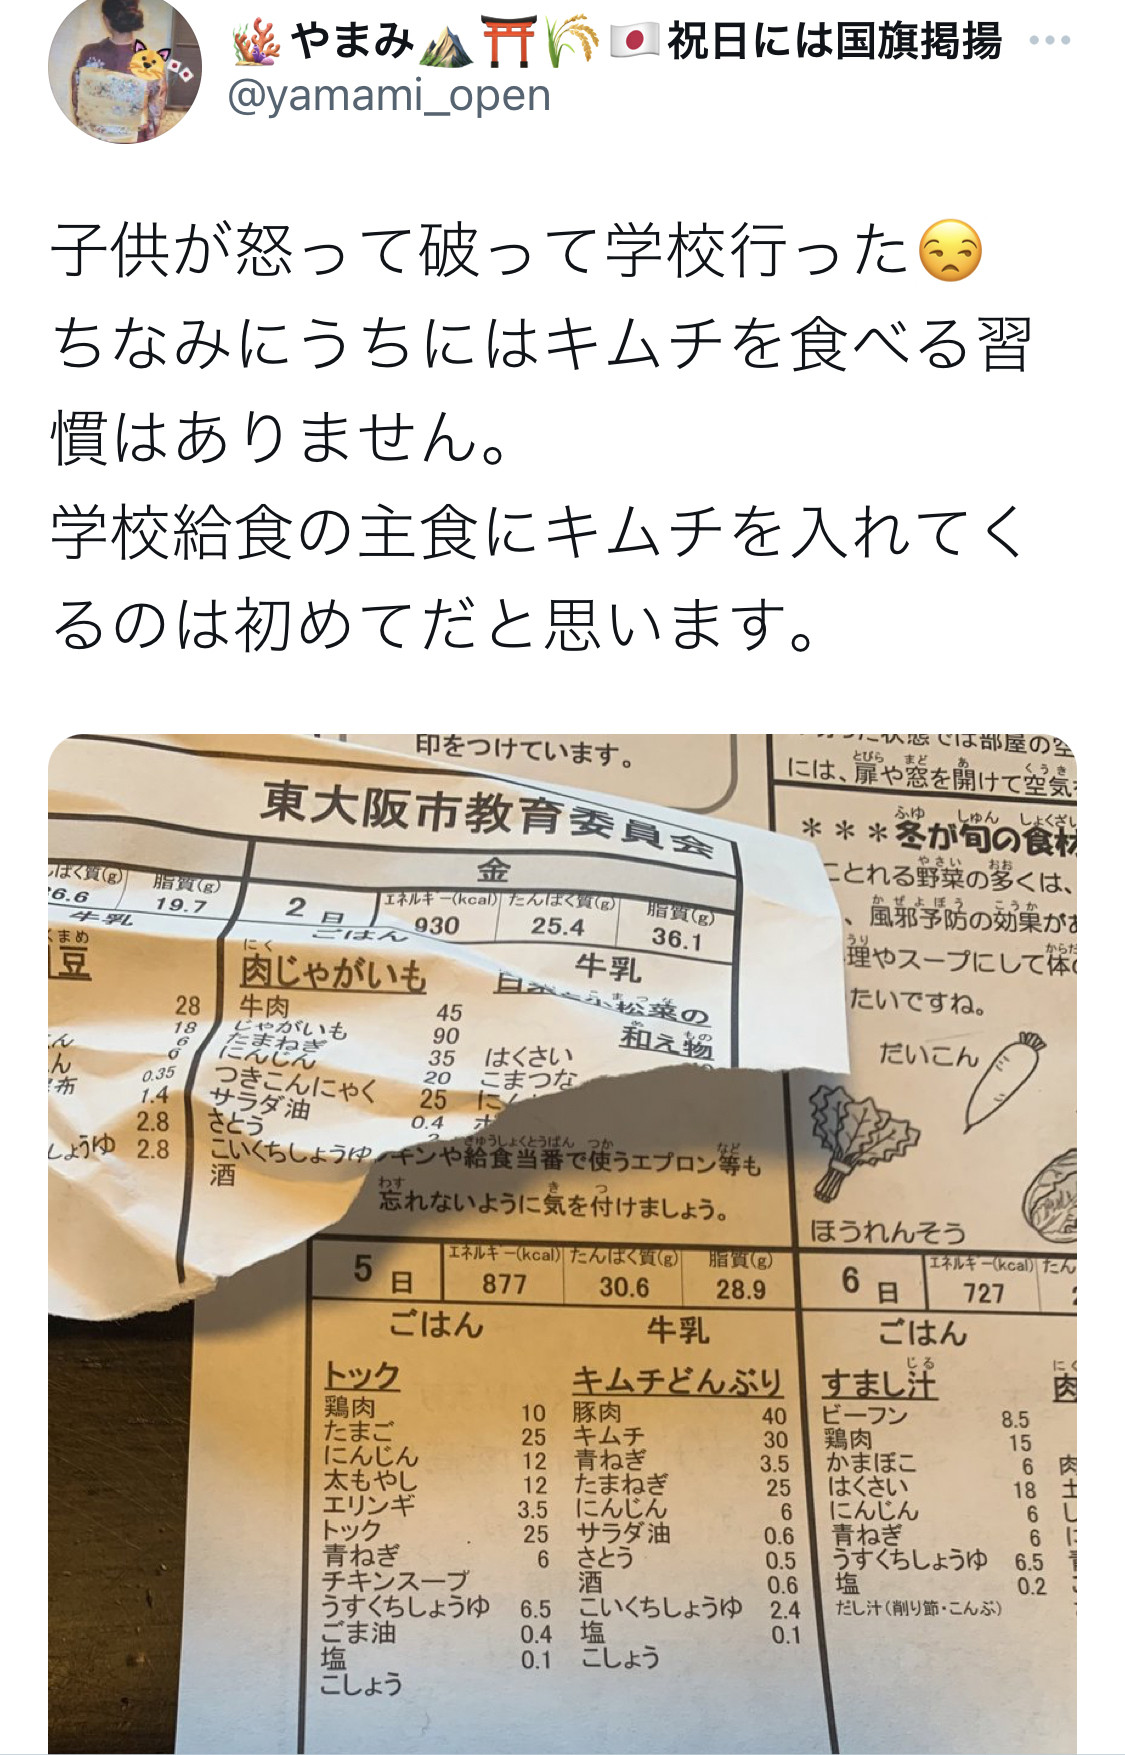 やまみ 祝日には国旗掲揚
@yamami_open
子供が怒って破って学校行った
ちなみにうちにはキムチを食べる習
慣はありません。
学校給食の主食にキムチを入れてく
るのは初めてだと思います。
印をつけています。
東大阪市教育委員会
金
脂質(g)
19.7
牛乳
2日
エネルギー(kcal) たんぱく質(g) 脂質(g)
930 25.4 36.1
ごはん 牛乳
まめ
豆
28
18
6
6
0.35
1.4
2.8
しょうゆ 2.8
にく
肉じゃがいも
牛肉 45
じゃがいも 90
たまねぎ 35
にんじん 20
つきこんにゃく 25
サラダ油 0.4
さとう
こいくちしょうゆ
酒
小松菜の
和え物
はくさい
こまつな
には、扉や窓を開けて空気
とびら まど あ くうき
ふゆ しゅん しょくざい
＊＊＊冬が旬の食材
とれる野菜の多くは、
やさい おお
かぜよぼう こうか
、風邪予防の効果が
理やスープにして体
たいですね。
だいこん
ほうれんそう
きゅうしょくとうばん つか など
キンや給食当番で使うエプロン等も
わす き つ
忘れないように気を付けましょう。
5日
エネルギー(kcal) たんぱく質(g) 脂質(g)
877 30.6 28.9
ごはん 牛乳
トック
鶏肉 10
たまご 25
にんじん 12
太もやし 12
エリンギ 3.5
トック 25
青ねぎ 6
チキンスープ
うすくちしょうゆ 6.5
ごま油 0.4
塩 0.1
こしょう
キムチどんぶり
豚肉 40
キムチ 30
青ねぎ 3.5
たまねぎ 25
にんじん 6
サラダ油 0.6
さとう 0.5
酒 0.6
こいくちしょうゆ 2.4
塩 0.1
こしょう
6日
エネルギー(kcal) たん
727
ごはん
じる
すまし汁
ビーフン 8.5
鶏肉 15
かまぼこ 6
はくさい 18
にんじん 6
青ねぎ 6
うすくちしょうゆ 6.5
塩 0.2
だし汁(削り節・こんぶ)
にく
肉